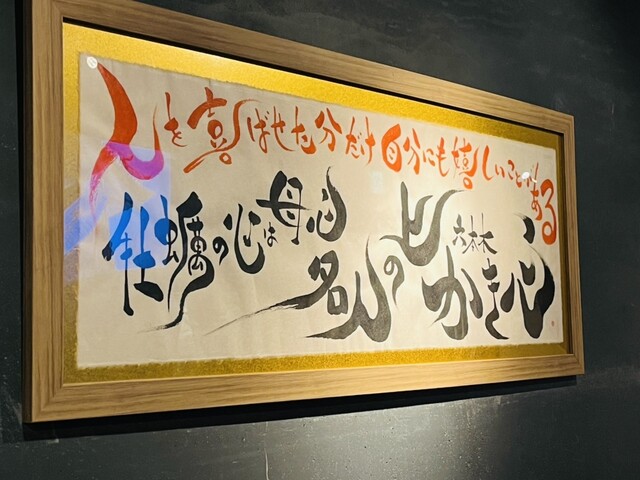 人を喜ばせた分だけ自分にも嬉しいことがある
牡蠣の心は母心
六本木
かき心